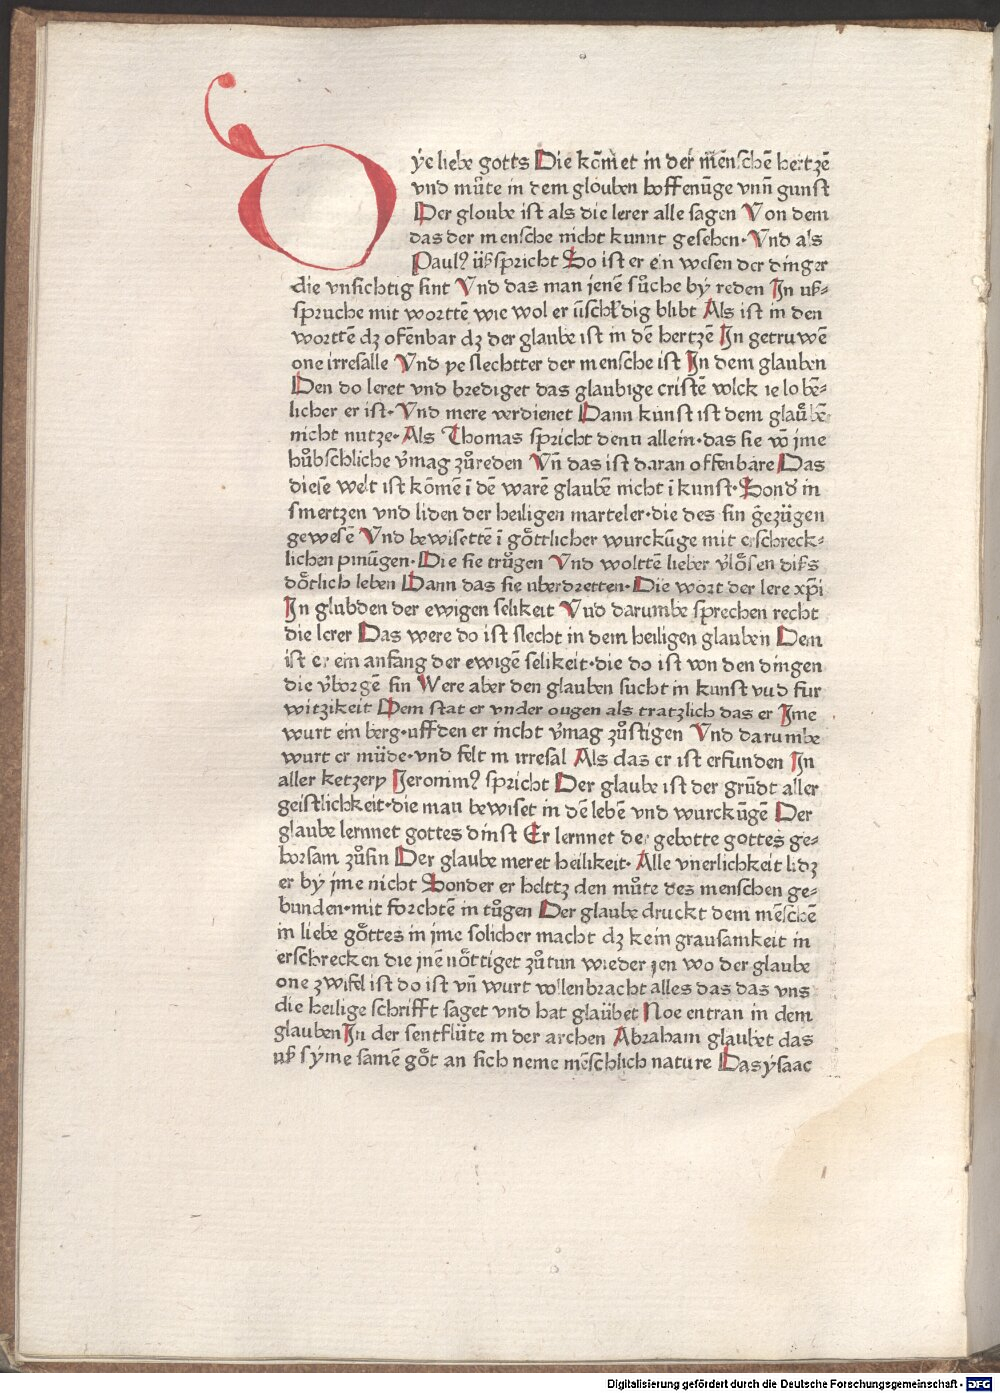 Dÿe liebe gotts Die kōmet in der mēnschē hertzē
vnd mu̇te in dem glouben hoffenūge vnn̄ gunst
Der gloube ist als die lerer alle sagen Von dem
das der mensche nicht kunnt gesehen· Vnd als
Paulꝰ ūßspricht So ist er ein wesen der dinger
die vnsichtig sint Vnd das man jenē sůche bÿ reden In uß⸗
spruche mit worttē wie wol er blibt Als ist in den
worttē dz offenbar dz der glaube ist in dē hertzē In getruwē
one irresalle Vnd ye slechtter der mensche ist In dem glauben
Den do leret vnd brediget das glaubige cristē wlck ie lobē⸗
licher er ist· Vnd mere verdienet Dann kunst ist dem glaůbē
nicht nutze· Als Thomas spricht denn allein·das sie vō jme
hůbschliche v̄mag zůreden Vn̄ das ist daran offenbare Das
diese welt ist kōmē ī dē warē glaubē nicht ī kunst· Sond̄ in
smertzen vnd liden der heiligen marteler·die des sin gezügen
gewesē Vnd bewisettē ī gȯttlicher wurckūge mit erschreck⸗
lichen pinūgen· Die sie trůgen Vnd wolttē lieber v̄lȯsen diß
dȯtlich leben Dann das sie uberdretten· Die wort der lere xp̄i
In glubden der ewigen selikeit Vnd darumbe sprechen recht
die lerer Das were do ist slecht in dem heiligen glauben Dem
ist er ein anfang der ewigē selikeit·die do ist von den dingen
die v̄borgē sin Were aber den glauben sucht in kunst vnd fur
witzikeit Dem stat er vnder ougen als tratzlich das er Jme
wurt ein berg·uffden er nicht v̄mag zůstigen Vnd darumbe
wurt er müde·vnd felt in irresal Als das er ist erfunden In
aller ketzery Jeronimꝰ spricht Der glaube ist der grūdt aller
geistlichkeit·die man bewiset in dē lebē vnd wurckūgē Der
glaube lernnet gottes dinst Er lernnet der gebotte gottes ge⸗
horsam zůsin Der glaube meret heilikeit· Alle vnerlichkeit lidz
er bÿ jme nicht Sonder er helttz den můte des menschen ge⸗
bunden·mit forchtē in tůgen Der glaube druckt dem mēschē
in liebe gȯttes in jme solicher macht dz kein grausamkeit in
erschrecken die jnē nȯttiget zůtun wieder jen wo der glaube
one zwifel ist do ist vn̄ wurt vollenbracht alles das das vns
die heilige schrifft saget vnd hat glaübet Noe entran in dem
glauben In der sentflüte in der archen Abraham glaubet das
uß sÿme samē gȯt an sich neme mēschlich nature Das ÿsaac
Digitalisierung gefördert durch die Deutsche Forschungsgemeinschaft - DFG